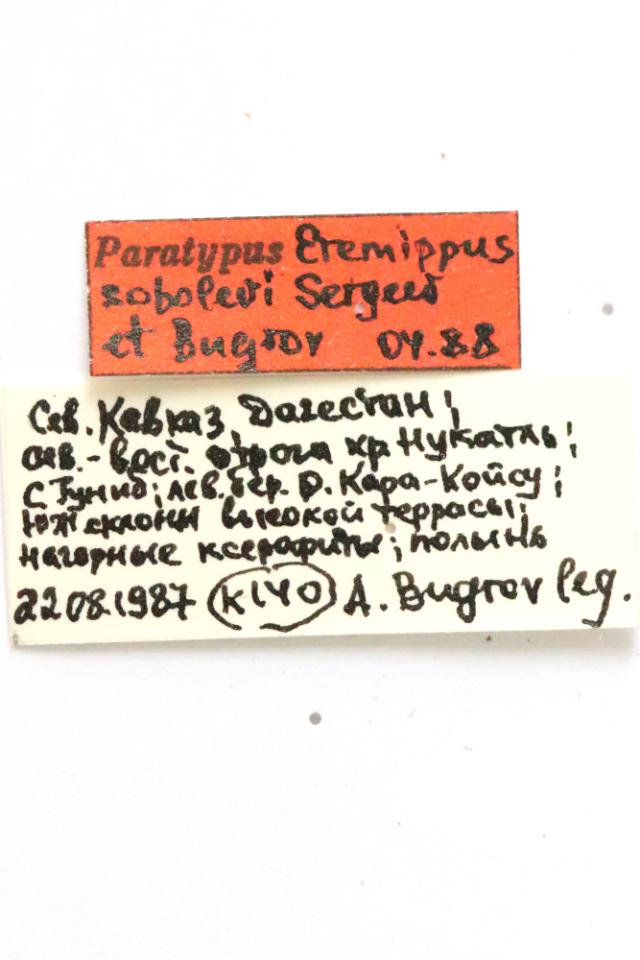 Paratypus Eremippus
sobolevi Sergeev
et Bugrov 04.88
Сев. Кавказ, Дагестан;
сев.-вост. отрога хр Нукатль;
с Гуниб; лев. бер. р. Кара-Койсу;
юж склоны высокой террасы;
нагорные ксерофиты; полынь
22.08.1987 К140 A. Bugrov leg.